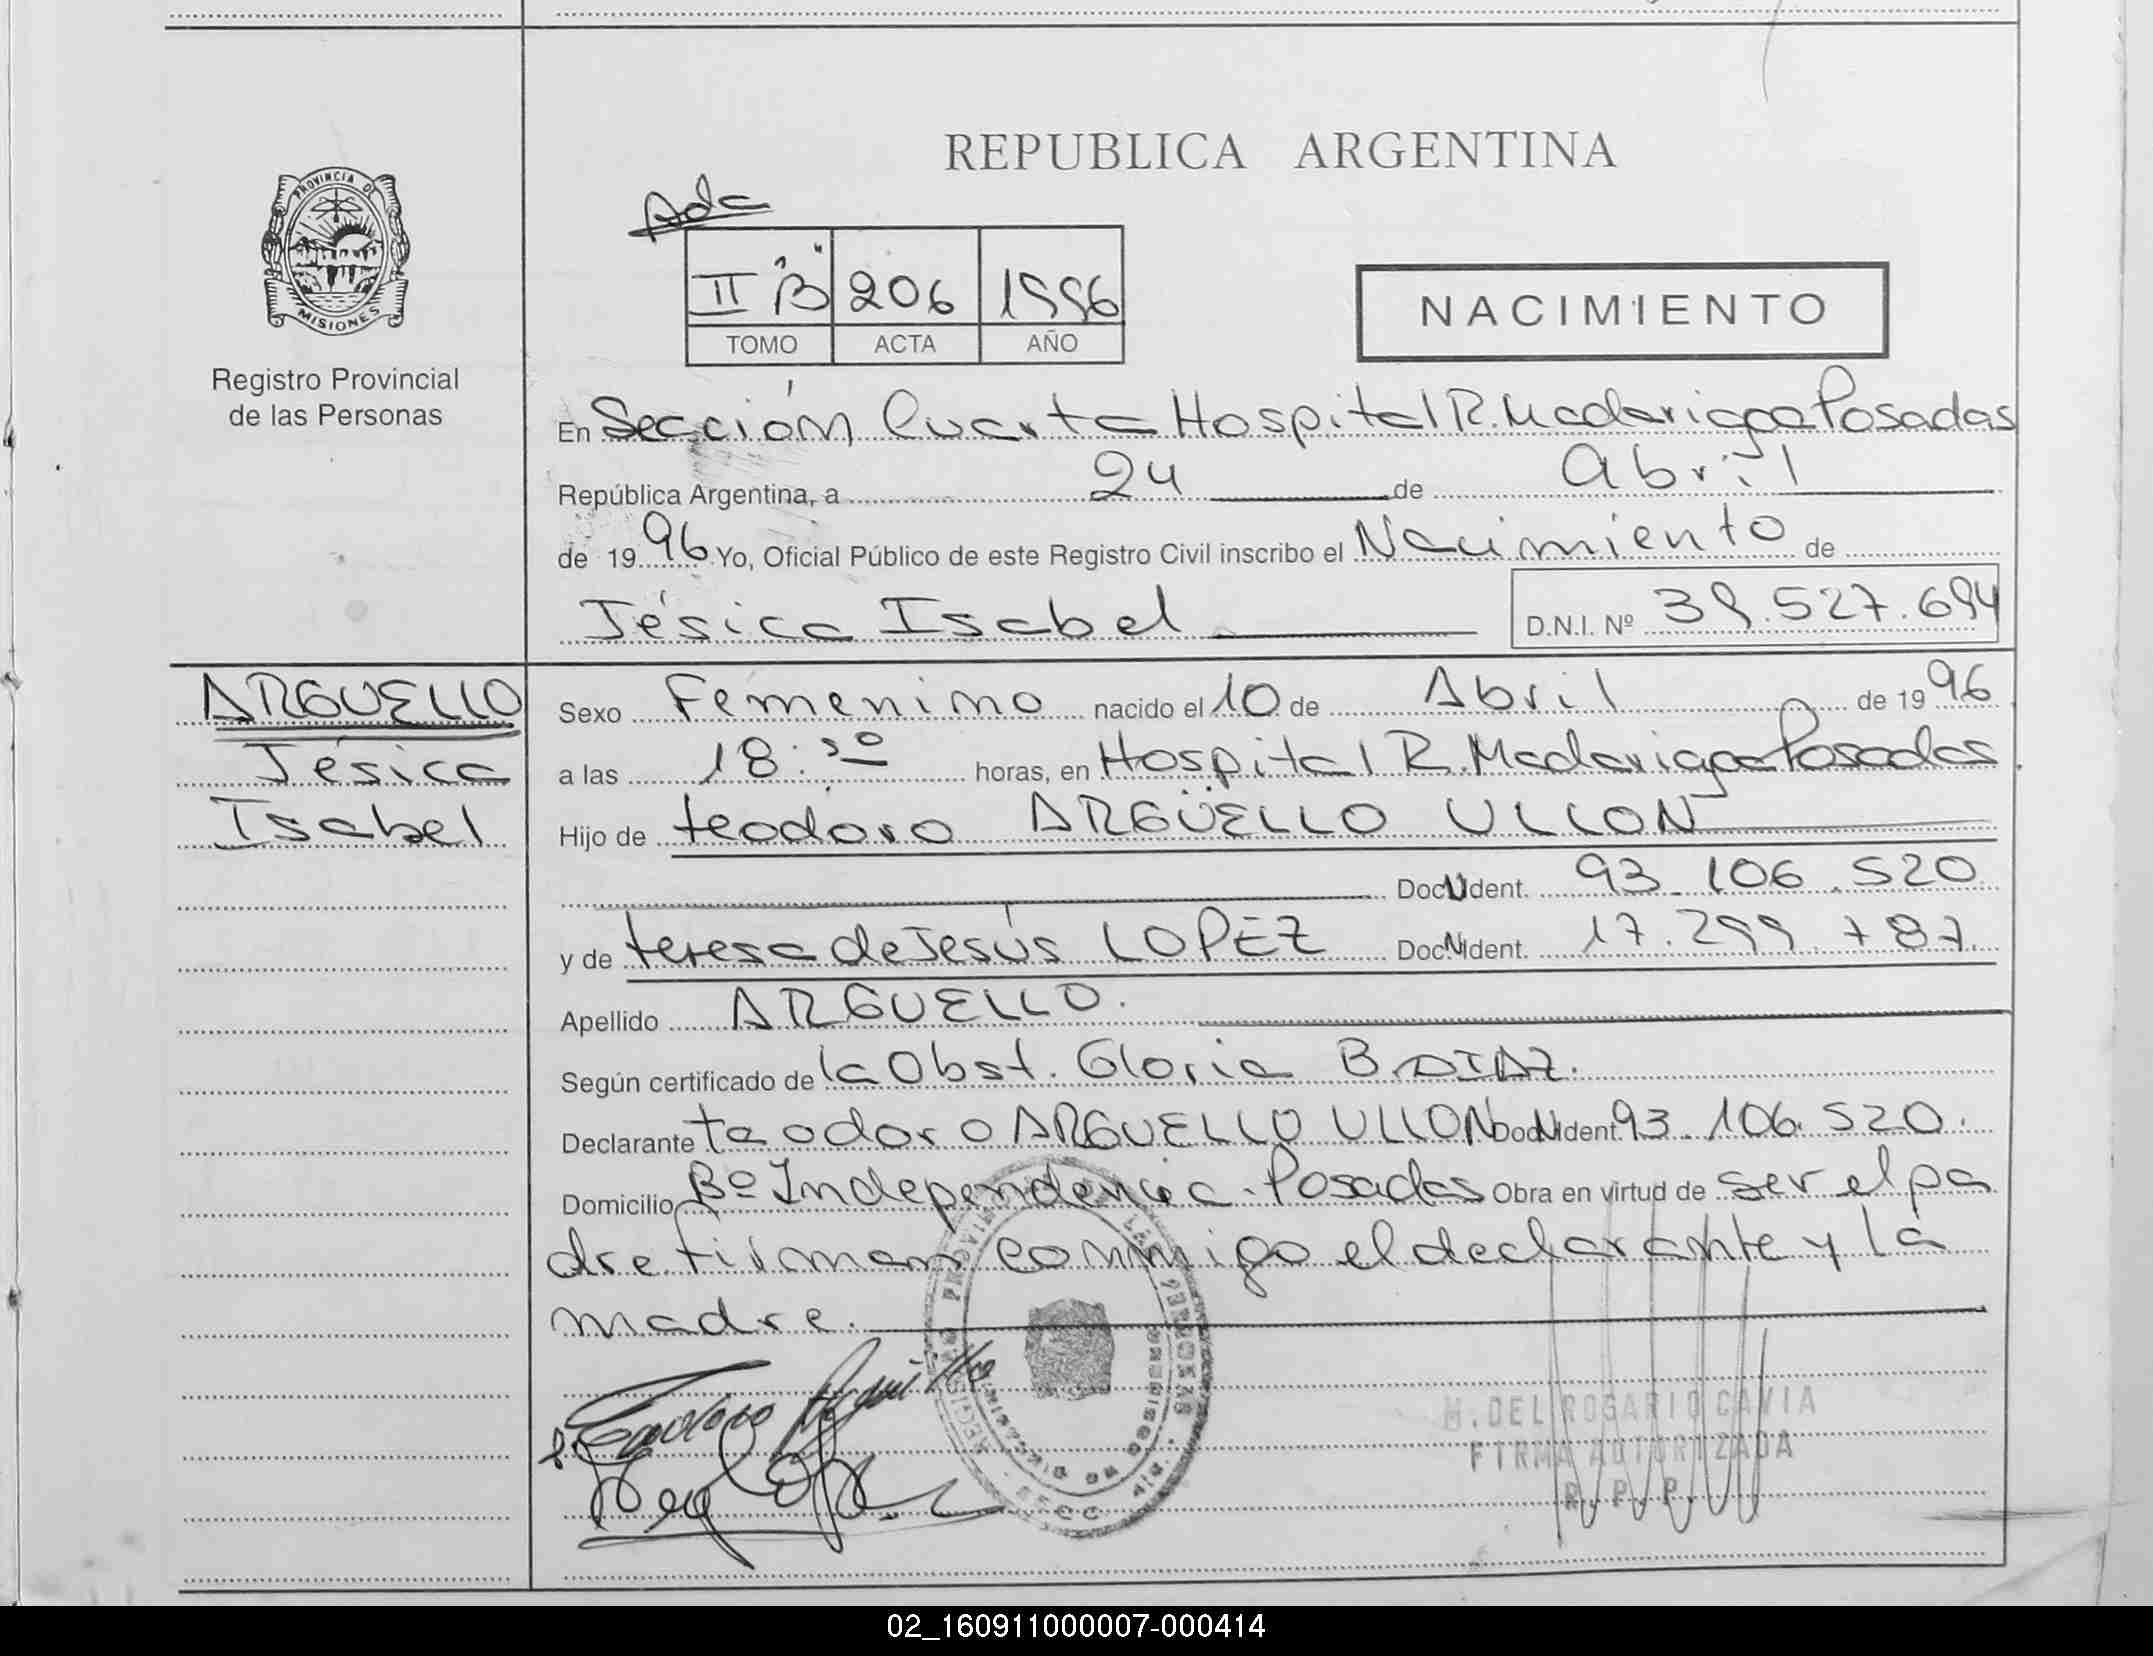 REPUBLICA ARGENTINA
PROVINCIA DE
MISIONES
Registro Provincial
de las Personas
Ada
II "B" 206 1996
TOMO ACTA AÑO
NACIMIENTO
En Sección Cuarta Hospital R. Madariaga Posadas
República Argentina, a 24 de abril
de 1996 Yo, Oficial Público de este Registro Civil inscribo el Nacimiento de
Jésica Isabel D.N.I. Nº 39.527.694
ARGUELLO
Jésica
Isabel
Sexo Femenino nacido el 10 de Abril de 1996
a las 18:30 horas, en Hospital R. Madariaga Posadas.
Hijo de teodoro ARGÜELLO ULLON
Doc N Ident. 93.106.520
y de teresa de Jesús LOPEZ Doc N Ident. 17.299.787.
Apellido ARGUELLO.
Según certificado de la Obst. Gloria B. DIAZ.
Declarante teodoro ARGUELLO ULLON Doc N Ident. 93.106.520.
Domicilio Bº Independencia - Posadas Obra en virtud de ser el pa
dre firman conmigo el declarante y la
madre.
Teodoro Arguello
M. DEL ROSARIO CAVIA
FIRMA AUTORIZADA
R. P. P.
02_160911000007-000414